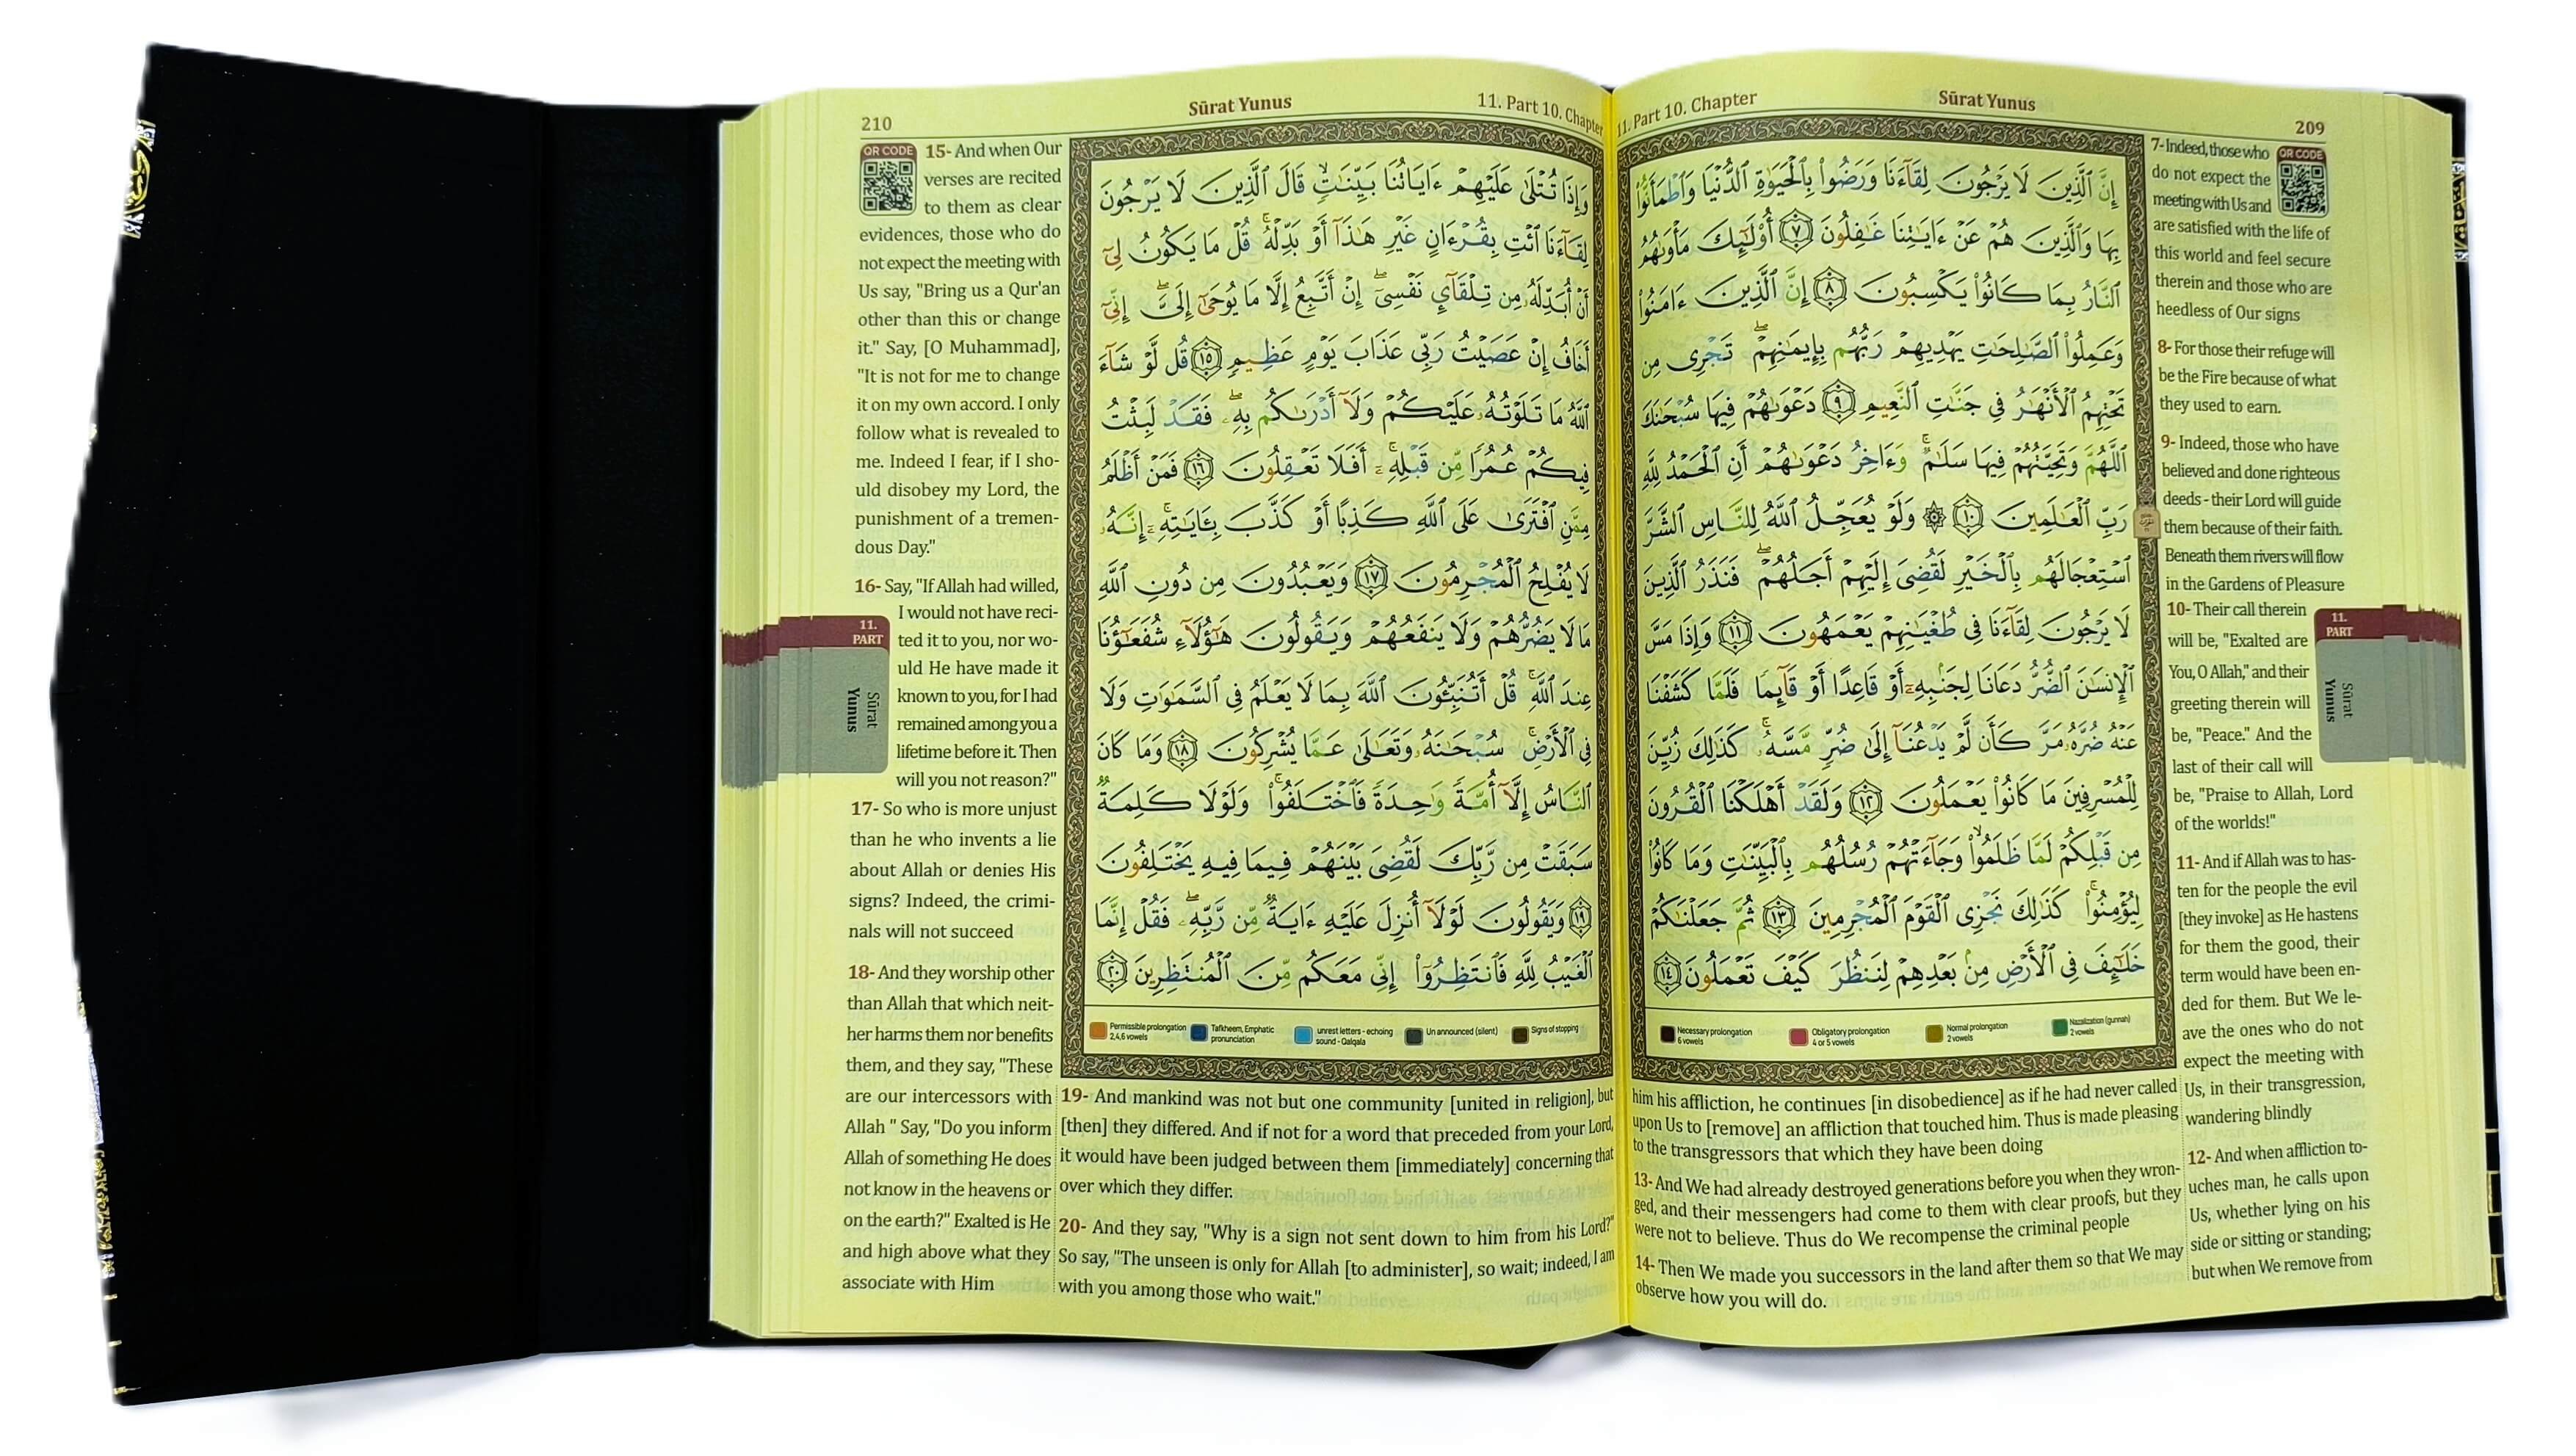 11. Part 10. Chapter
Sūrat Yunus
209
إِنَّ ٱلَّذِينَ لَا يَرْجُونَ لِقَآءَنَا وَرَضُوا۟ بِٱلْحَيَوٰةِ ٱلدُّنْيَا وَٱطْمَأَنُّوا۟
بِهَا وَٱلَّذِينَ هُمْ عَنْ ءَايَـٰتِنَا غَـٰفِلُونَ ٧ أُو۟لَـٰٓئِكَ مَأْوَىٰهُمُ
ٱلنَّارُ بِمَا كَانُوا۟ يَكْسِبُونَ ٨ إِنَّ ٱلَّذِينَ ءَامَنُوا۟
وَعَمِلُوا۟ ٱلصَّـٰلِحَـٰتِ يَهْدِيهِمْ رَبُّهُم بِإِيمَـٰنِهِمْ ۖ تَجْرِى مِن
تَحْتِهِمُ ٱلْأَنْهَـٰرُ فِى جَنَّـٰتِ ٱلنَّعِيمِ ٩ دَعْوَىٰهُمْ فِيهَا سُبْحَـٰنَكَ
ٱللَّهُمَّ وَتَحِيَّتُهُمْ فِيهَا سَلَـٰمٌ ۚ وَءَاخِرُ دَعْوَىٰهُمْ أَنِ ٱلْحَمْدُ لِلَّهِ
رَبِّ ٱلْعَـٰلَمِينَ ١٠ ۞ وَلَوْ يُعَجِّلُ ٱللَّهُ لِلنَّاسِ ٱلشَّرَّ
ٱسْتِعْجَالَهُم بِٱلْخَيْرِ لَقُضِىَ إِلَيْهِمْ أَجَلُهُمْ ۖ فَنَذَرُ ٱلَّذِينَ
لَا يَرْجُونَ لِقَآءَنَا فِى طُغْيَـٰنِهِمْ يَعْمَهُونَ ١١ وَإِذَا مَسَّ
ٱلْإِنسَـٰنَ ٱلضُّرُّ دَعَانَا لِجَنۢبِهِۦٓ أَوْ قَاعِدًا أَوْ قَآئِمًا فَلَمَّا كَشَفْنَا
عَنْهُ ضُرَّهُۥ مَرَّ كَأَن لَّمْ يَدْعُنَآ إِلَىٰ ضُرٍّ مَّسَّهُۥ ۚ كَذَٰلِكَ زُيِّنَ
لِلْمُسْرِفِينَ مَا كَانُوا۟ يَعْمَلُونَ ١٢ وَلَقَدْ أَهْلَكْنَا ٱلْقُرُونَ
مِن قَبْلِكُمْ لَمَّا ظَلَمُوا۟ ۙ وَجَآءَتْهُمْ رُسُلُهُم بِٱلْبَيِّنَـٰتِ وَمَا كَانُوا۟
لِيُؤْمِنُوا۟ ۚ كَذَٰلِكَ نَجْزِى ٱلْقَوْمَ ٱلْمُجْرِمِينَ ١٣ ثُمَّ جَعَلْنَـٰكُمْ
خَلَـٰٓئِفَ فِى ٱلْأَرْضِ مِنۢ بَعْدِهِمْ لِنَنظُرَ كَيْفَ تَعْمَلُونَ ١٤
Necessary prolongation
6 vowels
Obligatory prolongation
4 or 5 vowels
Normal prolongation
2 vowels
Nazalization (gunnah)
2 vowels
QR CODE
7- Indeed, those who
do not expect the
meeting with Us and
are satisfied with the life of
this world and feel secure
therein and those who are
heedless of Our signs
8- For those their refuge will
be the Fire because of what
they used to earn.
9- Indeed, those who have
believed and done righteous
deeds - their Lord will guide
them because of their faith.
Beneath them rivers will flow
in the Gardens of Pleasure
10- Their call therein
will be, "Exalted are
You, O Allah," and their
greeting therein will
be, "Peace." And the
last of their call will
be, "Praise to Allah, Lord
of the worlds!"
11- And if Allah was to has-
ten for the people the evil
[they invoke] as He hastens
for them the good, their
term would have been en-
ded for them. But We le-
ave the ones who do not
expect the meeting with
Us, in their transgression,
wandering blindly
12- And when affliction to-
uches man, he calls upon
Us, whether lying on his
side or sitting or standing;
but when We remove from
him his affliction, he continues [in disobedience] as if he had never called
upon Us to [remove] an affliction that touched him. Thus is made pleasing
to the transgressors that which they have been doing
13- And We had already destroyed generations before you when they wron-
ged, and their messengers had come to them with clear proofs, but they
were not to believe. Thus do We recompense the criminal people
14- Then We made you successors in the land after them so that We may
observe how you will do.
11.
PART
Sūrat
Yunus
210
Sūrat Yunus
11. Part 10. Chapter
وَإِذَا تُتْلَىٰ عَلَيْهِمْ ءَايَاتُنَا بَيِّنَـٰتٍ ۙ قَالَ ٱلَّذِينَ لَا يَرْجُونَ
لِقَآءَنَا ٱئْتِ بِقُرْءَانٍ غَيْرِ هَـٰذَآ أَوْ بَدِّلْهُ ۚ قُلْ مَا يَكُونُ لِىٓ
أَنْ أُبَدِّلَهُۥ مِن تِلْقَآئِ نَفْسِىٓ ۖ إِنْ أَتَّبِعُ إِلَّا مَا يُوحَىٰٓ إِلَىَّ ۖ إِنِّىٓ
أَخَافُ إِنْ عَصَيْتُ رَبِّى عَذَابَ يَوْمٍ عَظِيمٍ ١٥ قُل لَّوْ شَآءَ
ٱللَّهُ مَا تَلَوْتُهُۥ عَلَيْكُمْ وَلَآ أَدْرَىٰكُم بِهِۦ ۖ فَقَدْ لَبِثْتُ
فِيكُمْ عُمُرًا مِّن قَبْلِهِۦٓ ۚ أَفَلَا تَعْقِلُونَ ١٦ فَمَنْ أَظْلَمُ
مِمَّنِ ٱفْتَرَىٰ عَلَى ٱللَّهِ كَذِبًا أَوْ كَذَّبَ بِـَٔايَـٰتِهِۦٓ ۚ إِنَّهُۥ
لَا يُفْلِحُ ٱلْمُجْرِمُونَ ١٧ وَيَعْبُدُونَ مِن دُونِ ٱللَّهِ
مَا لَا يَضُرُّهُمْ وَلَا يَنفَعُهُمْ وَيَقُولُونَ هَـٰٓؤُلَآءِ شُفَعَـٰٓؤُنَا
عِندَ ٱللَّهِ ۚ قُلْ أَتُنَبِّـُٔونَ ٱللَّهَ بِمَا لَا يَعْلَمُ فِى ٱلسَّمَـٰوَٰتِ وَلَا
فِى ٱلْأَرْضِ ۚ سُبْحَـٰنَهُۥ وَتَعَـٰلَىٰ عَمَّا يُشْرِكُونَ ١٨ وَمَا كَانَ
ٱلنَّاسُ إِلَّآ أُمَّةً وَٰحِدَةً فَٱخْتَلَفُوا۟ ۚ وَلَوْلَا كَلِمَةٌ
سَبَقَتْ مِن رَّبِّكَ لَقُضِىَ بَيْنَهُمْ فِيمَا فِيهِ يَخْتَلِفُونَ
١٩ وَيَقُولُونَ لَوْلَآ أُنزِلَ عَلَيْهِ ءَايَةٌ مِّن رَّبِّهِۦ ۖ فَقُلْ إِنَّمَا
ٱلْغَيْبُ لِلَّهِ فَٱنتَظِرُوٓا۟ إِنِّى مَعَكُم مِّنَ ٱلْمُنتَظِرِينَ ٢٠
Permissible prolongation
2,4,6 vowels
Tafkheem, Emphatic
pronunciation
unrest letters - echoing
sound - Qalqala
Un announced (silent)
Signs of stopping
QR CODE
15- And when Our
verses are recited
to them as clear
evidences, those who do
not expect the meeting with
Us say, "Bring us a Qur'an
other than this or change
it." Say, [O Muhammad],
"It is not for me to change
it on my own accord. I only
follow what is revealed to
me. Indeed I fear, if I sho-
uld disobey my Lord, the
punishment of a tremen-
dous Day."
16- Say, "If Allah had willed,
I would not have reci-
ted it to you, nor wo-
uld He have made it
known to you, for I had
remained among you a
lifetime before it. Then
will you not reason?"
17- So who is more unjust
than he who invents a lie
about Allah or denies His
signs? Indeed, the crimi-
nals will not succeed
18- And they worship other
than Allah that which neit-
her harms them nor benefits
them, and they say, "These
are our intercessors with
Allah " Say, "Do you inform
Allah of something He does
not know in the heavens or
on the earth?" Exalted is He
and high above what they
associate with Him
19- And mankind was not but one community [united in religion], but
[then] they differed. And if not for a word that preceded from your Lord,
it would have been judged between them [immediately] concerning that
over which they differ.
20- And they say, "Why is a sign not sent down to him from his Lord?"
So say, "The unseen is only for Allah [to administer], so wait; indeed, I am
with you among those who wait."
11.
PART
Sūrat
Yunus